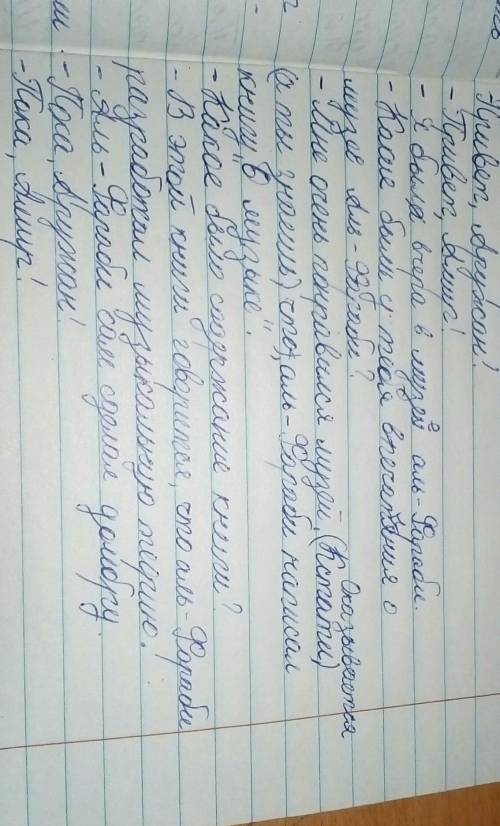 Привет, Аружан!
- Привет, Амир!
- Я была вчера в музее аль-Фараби.
- Какие были у тебя впечатления о
музее Аль-Фараби?
- Мне очень понравился музей. (Кстати,) Оказывается
(а ты знаешь) что, аль-Фараби написал
книгу „О музыке".
- Какое было содержание книги?
- В этой книги говорится, что аль-Фараби
разработал музыкальную теорию.
- Аль-Фараби сам сделал домбру.
- Пока, Аружан!
- Пока, Амир!